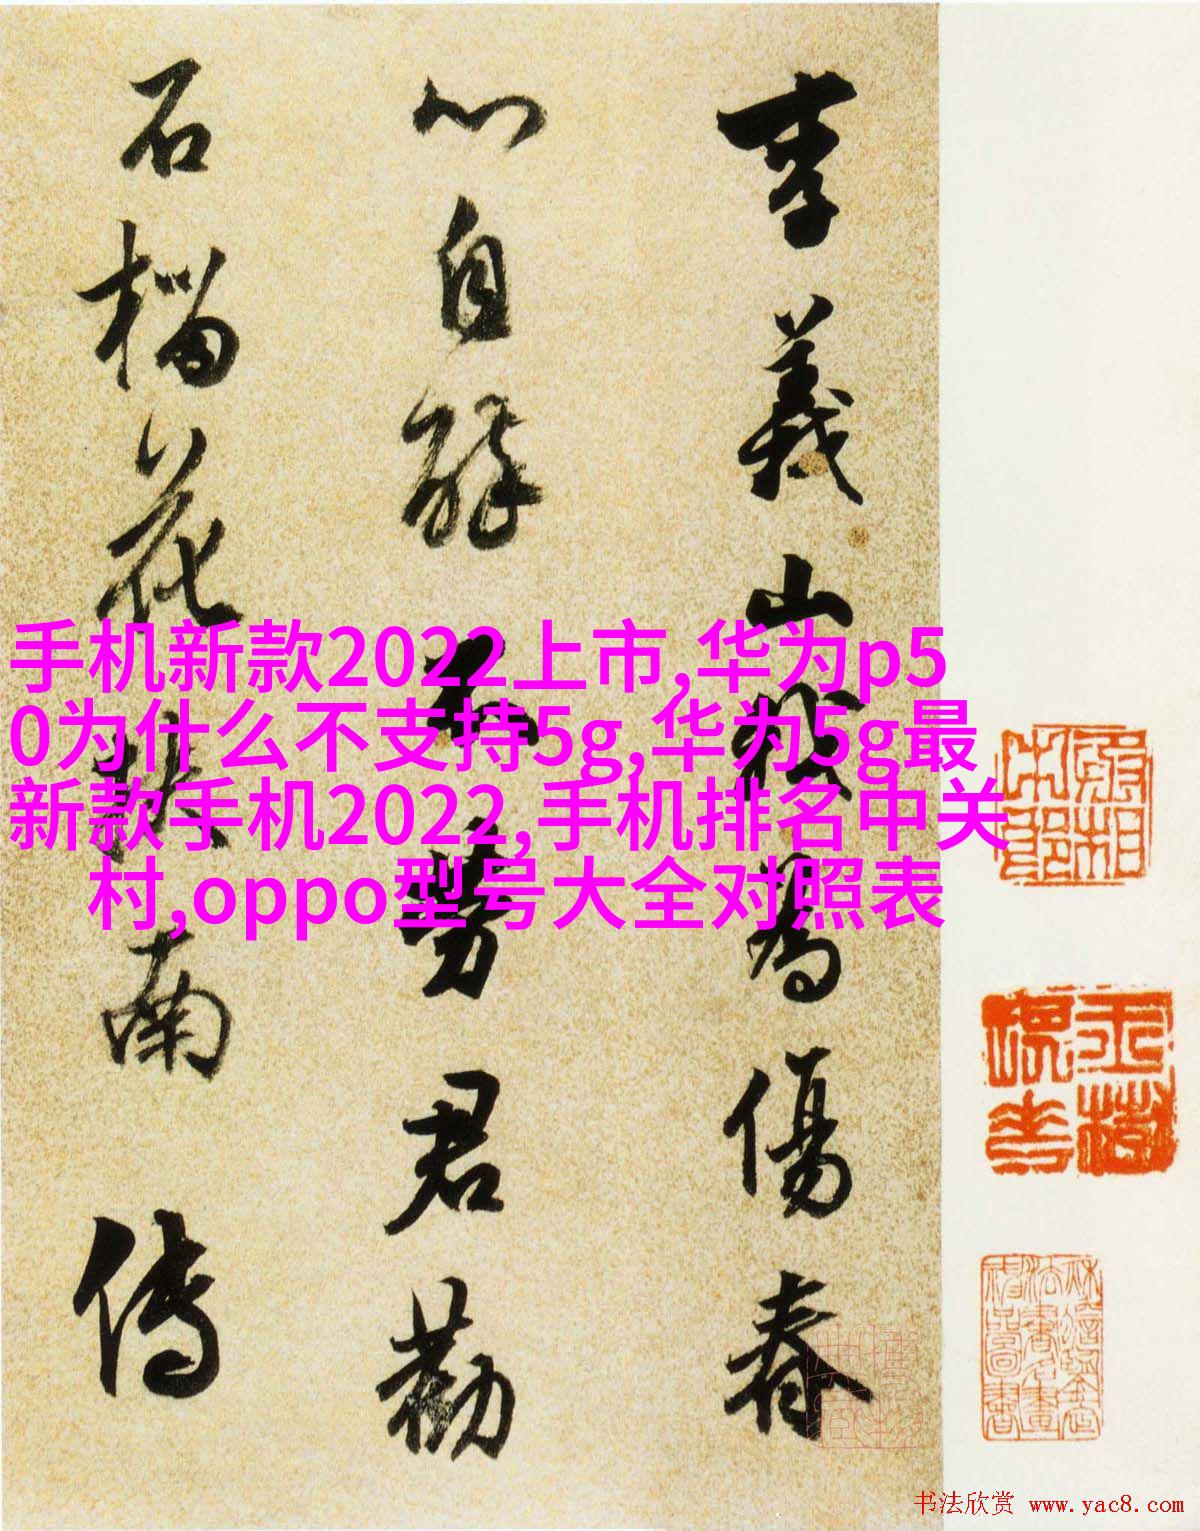 李義山為傷春
心自醉不勞君勸
石榴花扶南傳
手机新款2022上市,华为p5
0为什么不支持5g,华为5g最
新款手机2022,手机排名中关
村,oppo型号大全对照表
书法欣赏 www.yac8.com